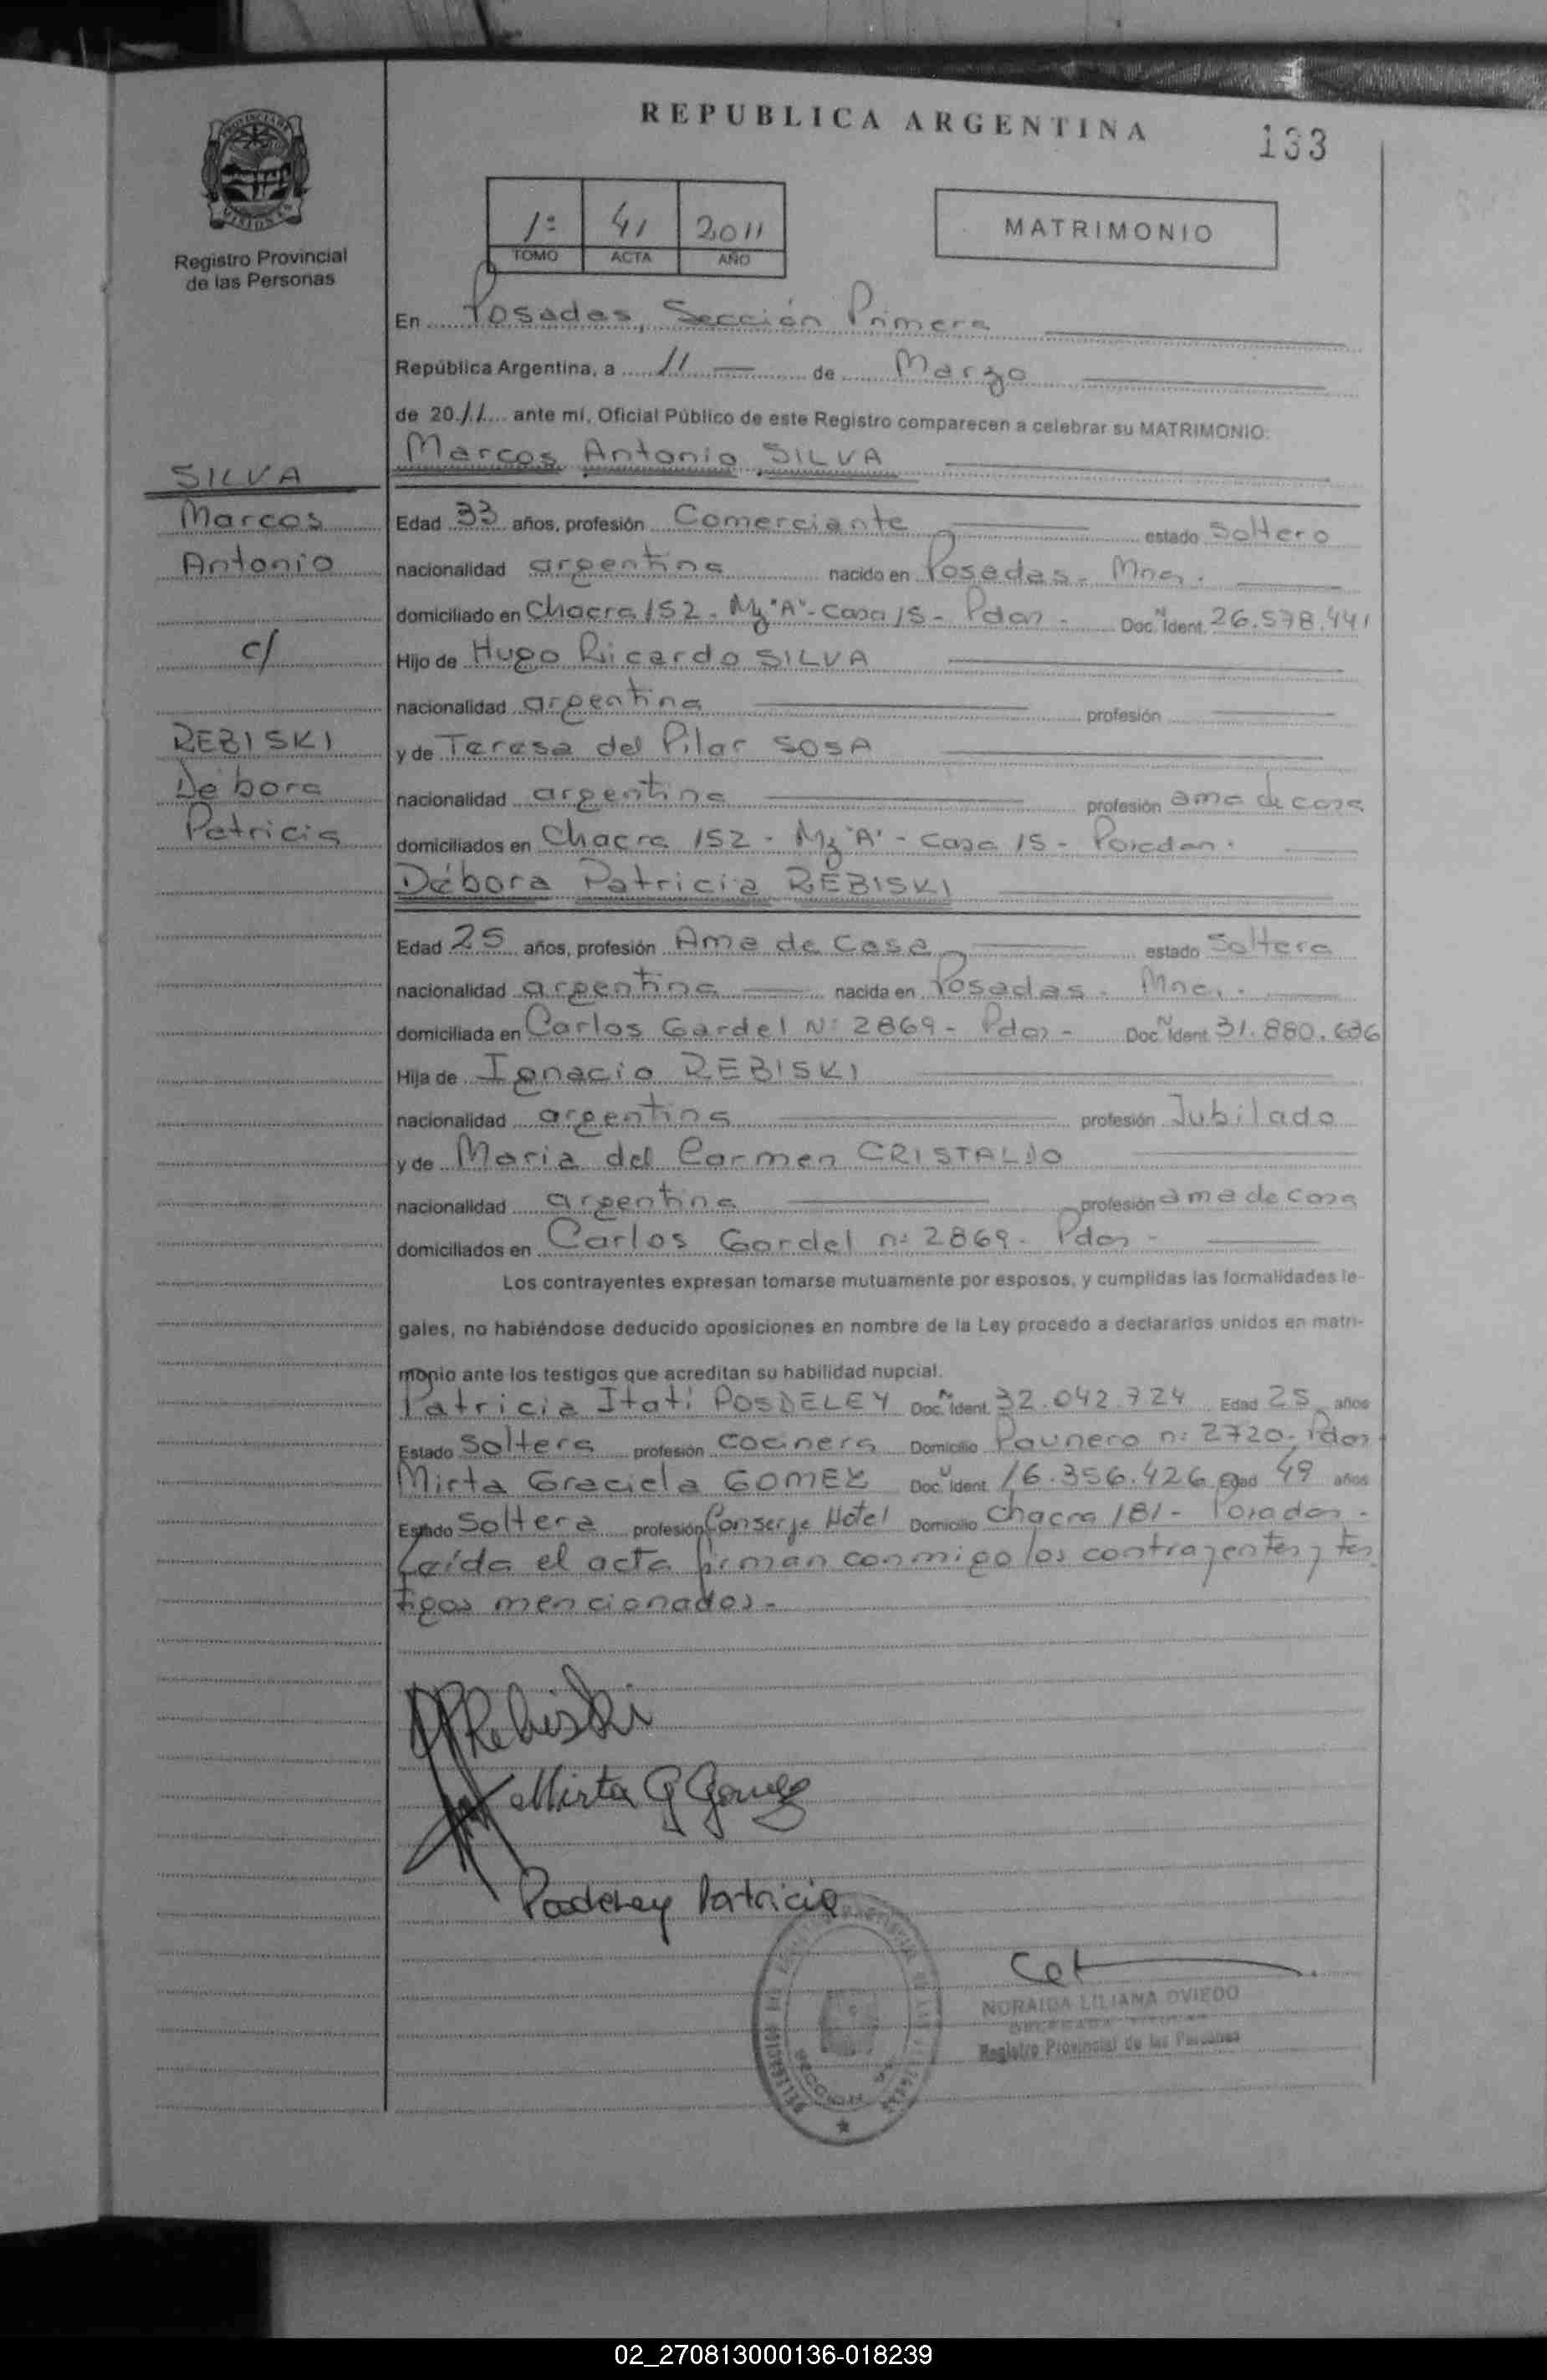 REPUBLICA ARGENTINA
133
PROVINCIA DE MISIONES
Registro Provincial
de las Personas
1º 41 2011
TOMO ACTA AÑO
MATRIMONIO
En Posadas, Sección Primera
República Argentina, a 11 de Marzo
de 2011 ante mí, Oficial Público de este Registro comparecen a celebrar su MATRIMONIO:
Marcos Antonio SILVA
SILVA
Marcos
Antonio
c/
REBISKI
Débora
Patricia
Edad 33 años, profesión Comerciante estado Soltero
nacionalidad argentina nacido en Posadas - Mnes.
domiciliado en Chacra 152 - Mz "A" - Casa 15 - Pdas - Doc. N Ident. 26.578.441
Hijo de Hugo Ricardo SILVA
nacionalidad argentina profesión
y de Teresa del Pilar SOSA
nacionalidad argentina profesión ama de casa
domiciliados en Chacra 152 - Mz "A" - Casa 15 - Posadas.
Débora Patricia REBISKI
Edad 25 años, profesión Ama de Casa estado Soltera
nacionalidad argentina nacida en Posadas - Mnes.
domiciliada en Carlos Gardel Nº 2869 - Pdas - Doc. N Ident. 31.880.636
Hija de Ignacio REBISKI
nacionalidad argentina profesión Jubilado
y de María del Carmen CRISTALDO
nacionalidad argentina profesión ama de casa
domiciliados en Carlos Gardel nº 2869 - Pdas -
Los contrayentes expresan tomarse mutuamente por esposos, y cumplidas las formalidades le-
gales, no habiéndose deducido oposiciones en nombre de la Ley procedo a declararlos unidos en matri-
monio ante los testigos que acreditan su habilidad nupcial.
Patricia Itatí POSDELEY Doc. N Ident. 32.042.724 Edad 25 años
Estado Soltera profesión cocinera Domicilio Paunero nº 2720 - Pdas.
Mirta Graciela GOMEZ Doc. N Ident. 16.356.426 Edad 49 años
Estado Soltera profesión Conserje Hotel Domicilio Chacra 181 - Posadas -
Leída el acta firman conmigo los contrayentes y tes
tigos mencionados -
DPRebiski
Mirta G Gomez
Posdeley Patricia
NORAIDA LILIANA OVIEDO
DELEGADA TITULAR
Registro Provincial de las Personas
SECCION
02_270813000136-018239